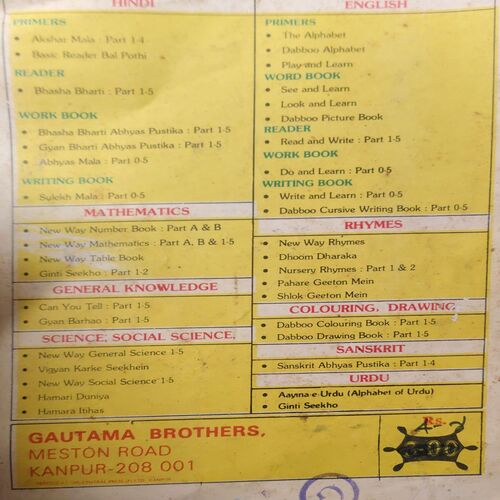 HINDI
PRIMERS
Akshar Mala : Part 1-4
Basic Reader Bal Pothi
READER
Bhasha Bharti : Part 1-5
WORK BOOK
Bhasha Bharti Abhyas Pustika : Part 1-5
Gyan Bharti Abhyas Pustika : Part 1-5
Abhyas Mala : Part 0-5
WRITING BOOK
Sulekh Mala : Part 0-5
MATHEMATICS
New Way Number Book : Part A & B
New Way Mathematics : Part A, B & 1-5
New Way Table Book
Ginti Seekho : Part 1-2
GENERAL KNOWLEDGE
Can You Tell : Part 1-5
Gyan Barhao : Part 1-5
SCIENCE, SOCIAL SCIENCE,
New Way General Science 1-5
Vigyan Karke Seekhein
New Way Social Science 1-5
Hamari Duniya
Hamara Itihas
ENGLISH
PRIMERS
The Alphabet
Dabboo Alphabet
Play and Learn
WORD BOOK
See and Learn
Look and Learn
Dabboo Picture Book
READER
Read and Write : Part 1-5
WORK BOOK
Do and Learn : Part 0-5
WRITING BOOK
Write and Learn : Part 0-5
Dabboo Cursive Writing Book : Part 0-5
RHYMES
New Way Rhymes
Dhoom Dharaka
Nursery Rhymes : Part 1 & 2
Pahare Geeton Mein
Shlok Geeton Mein
COLOURING, DRAWING,
Dabboo Colouring Book : Part 1-5
Dabboo Drawing Book : Part 1-5
SANSKRIT
Sanskrit Abhyas Pustika : Part 1-4
URDU
Aayina-e-Urdu (Alphabet of Urdu)
Ginti Seekho
GAUTAMA BROTHERS,
MESTON ROAD
KANPUR-208 001
Rs.